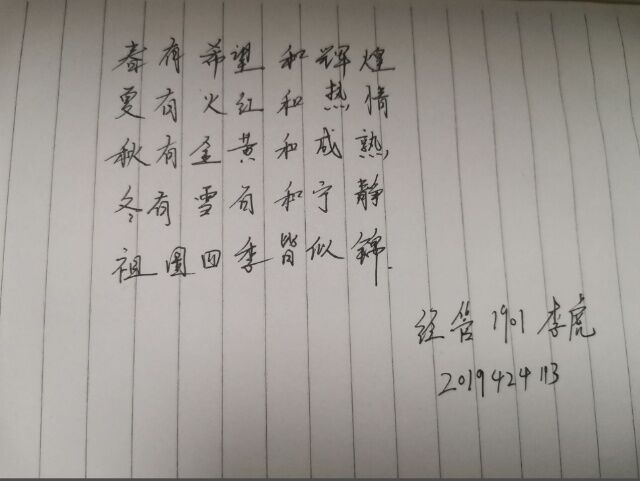 春有希望和辉煌
夏有火红和热情
秋有金黄和成熟
冬有雪白和宁静
祖国四季皆似锦.
经营1901 李虎
2019424113